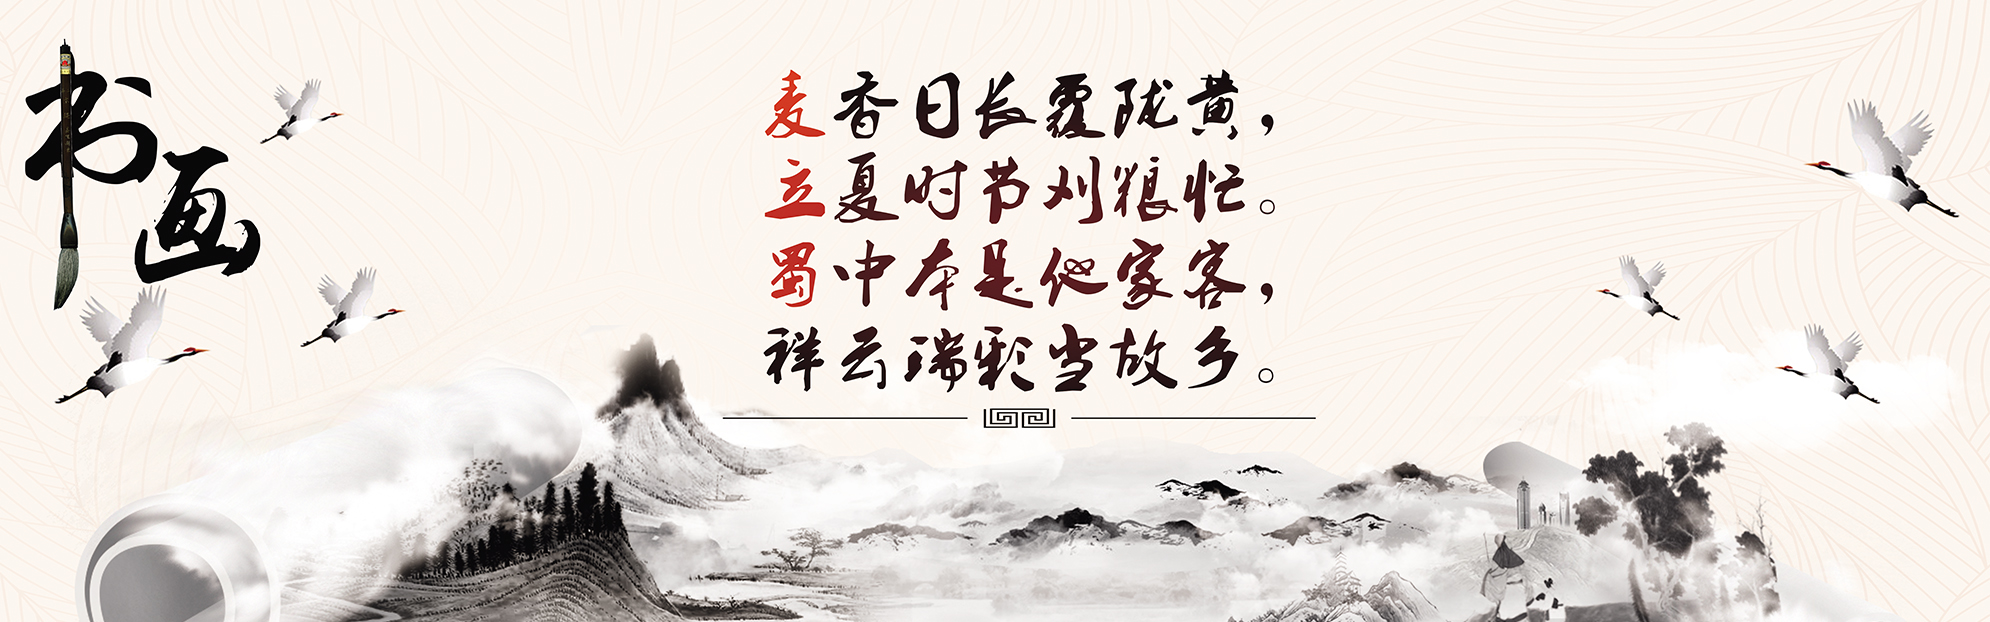 书画
麦香日长覆陇黄，
立夏时节刈粮忙。
蜀中本是他家客，
祥云瑞彩当故乡。